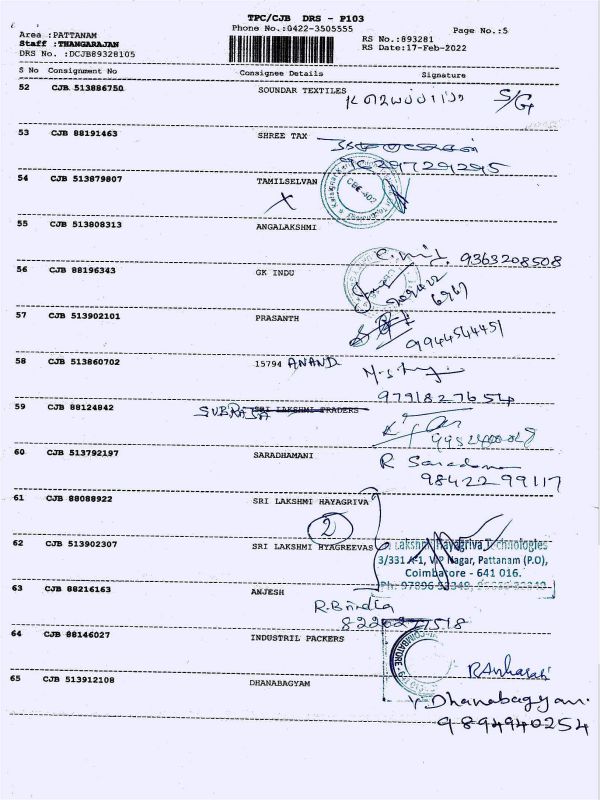 TPC/CJB DRS - P103
Phone No.:0422-3505555
Page No.:5
Area :PATTANAM
Staff :THANGARAJAN
DRS No. :DCJB89328105
RS No.:893281
RS Date:17-Feb-2022
S No Consignment No Consignee Details Signature
52 CJB 513886750 SOUNDAR TEXTILES
S/G
53 CJB 88191463 SHREE TAX
54 CJB 513879807 TAMILSELVAN
X
55 CJB 513808313 ANGALAKSHMI
9363208508
56 CJB 88196343 GK INDU
57 CJB 513902101 PRASANTH
9944544451
58 CJB 513860702 15794 ANAND
9791827654
59 CJB 88124842 SUBRAJA SRI LAKSHMI TRADERS
60 CJB 513792197 SARADHAMANI
R
9842299117
61 CJB 88088922 SRI LAKSHMI HAYAGRIVA
2
62 CJB 513902307 SRI LAKSHMI HYAGREEVAS
Lakshmi Hayagriva Technologies
3/331 A-1, VIP Nagar, Pattanam (P.O),
Coimbatore - 641 016.
63 CJB 88216163 ANJESH
R.Brindha
8220277518
64 CJB 88146027 INDUSTRIL PACKERS
65 CJB 513912108 DHANABAGYAM
V. Dhanabagyam.
9894940254